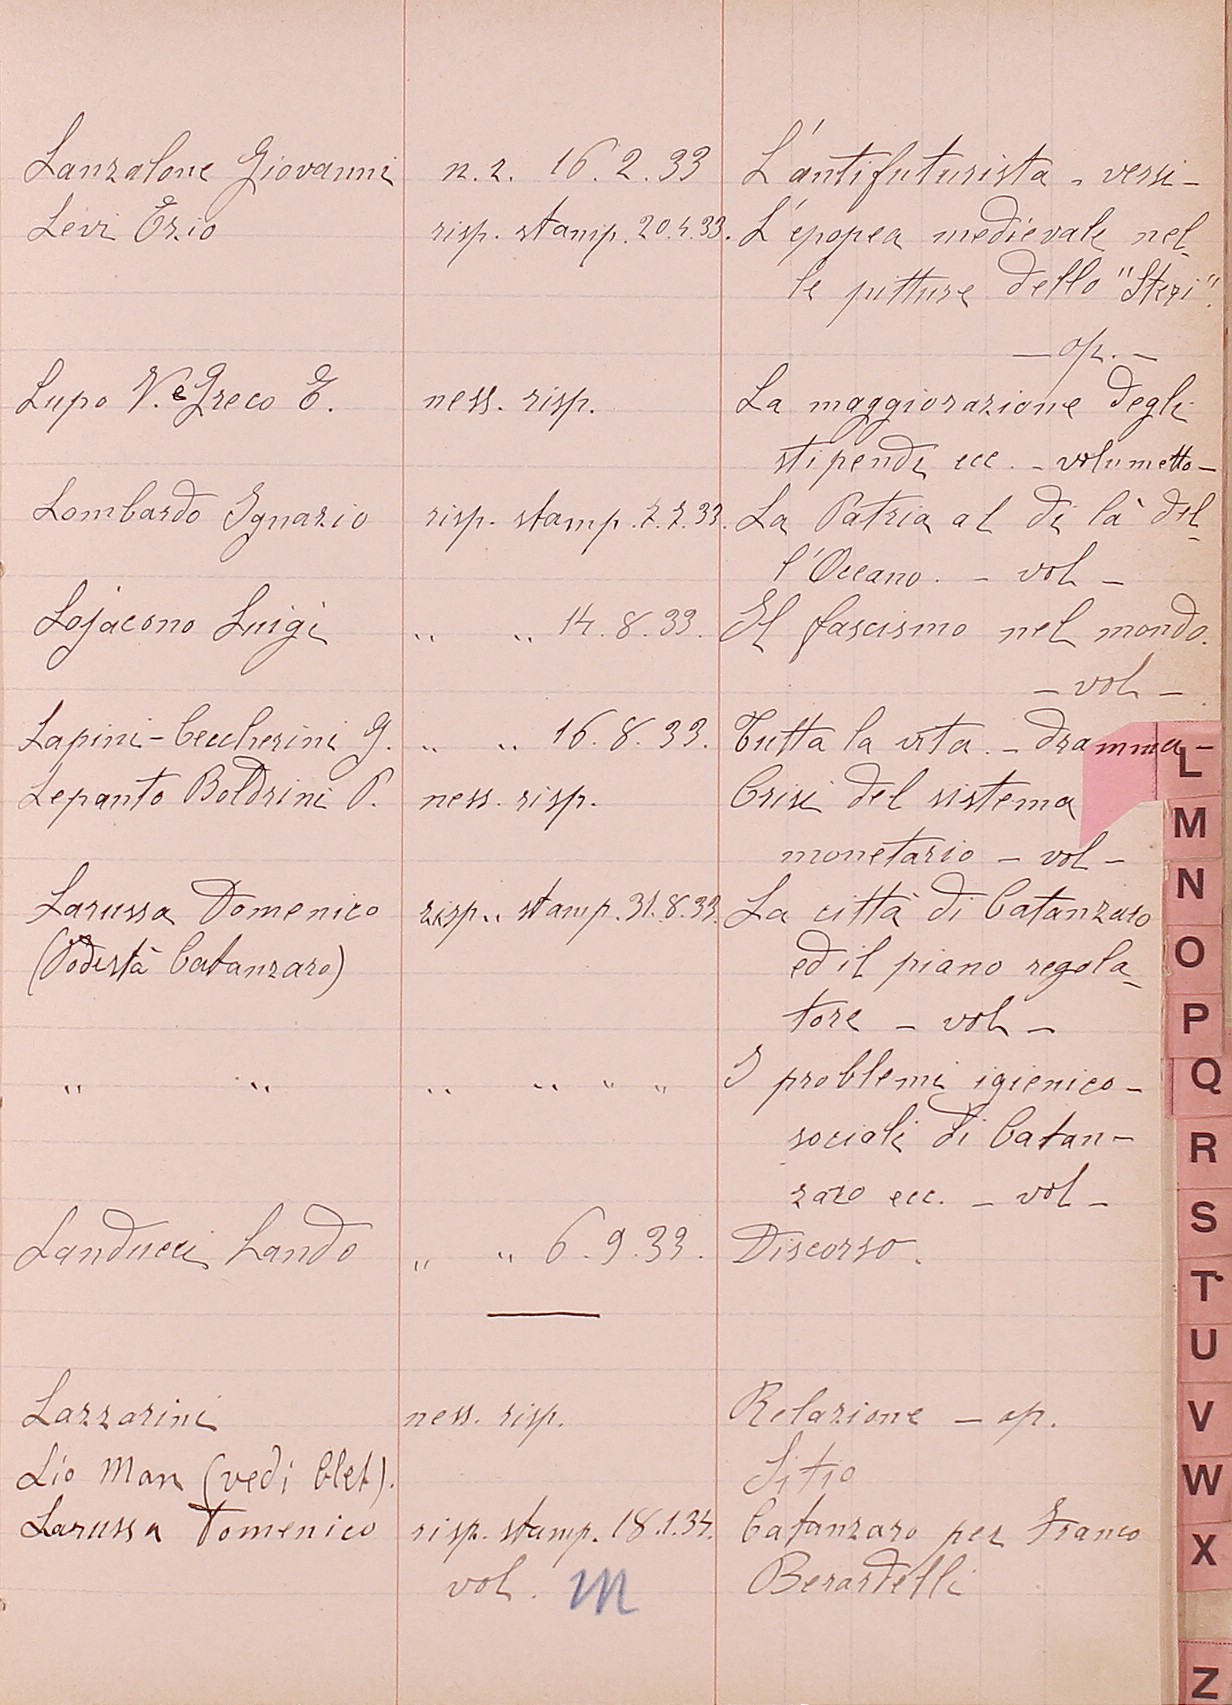 Lanzalone Giovanni n. 2. 16.2.33 L'antifuturista - versi -
Levi Ezio risp. stamp. 20.4.33. L'epopea medievale nel-
le pitture dello "Steri".
- op. -
Lupo V. e Greco E. ness. risp. La maggiorazione degli
stipendi ecc. - volumetto -
Lombardo Ignazio risp. stamp. 2.2.33. La Patria al di là del-
l'Oceano. - vol -
Lojacono Luigi " " 14.8.33. Il fascismo nel mondo.
- vol -
Lapini-Ceccherini G. " " 16.8.33. Tutta la vita. - dramma -
Lepanto Boldrini P. ness. risp. Crisi del sistema
monetario - vol -
Larussa Domenico risp. stamp. 31.8.33. La città di Catanzaro
(Podestà Catanzaro) ed il piano regola-
tore - vol -
" " " " " " I problemi igienico-
sociali di Catan-
zaro ecc. - vol -
Landucci Lando " " 6.9.33. Discorso.
Lazzarini ness. risp. Relazione - op.
Lio Man (vedi Clet). Sitio
Larussa Domenico risp. stamp. 18.1.34. Catanzaro per Franco
vol. M Berardelli
L
M
N
O
P
Q
R
S
T
U
V
W
X
Z